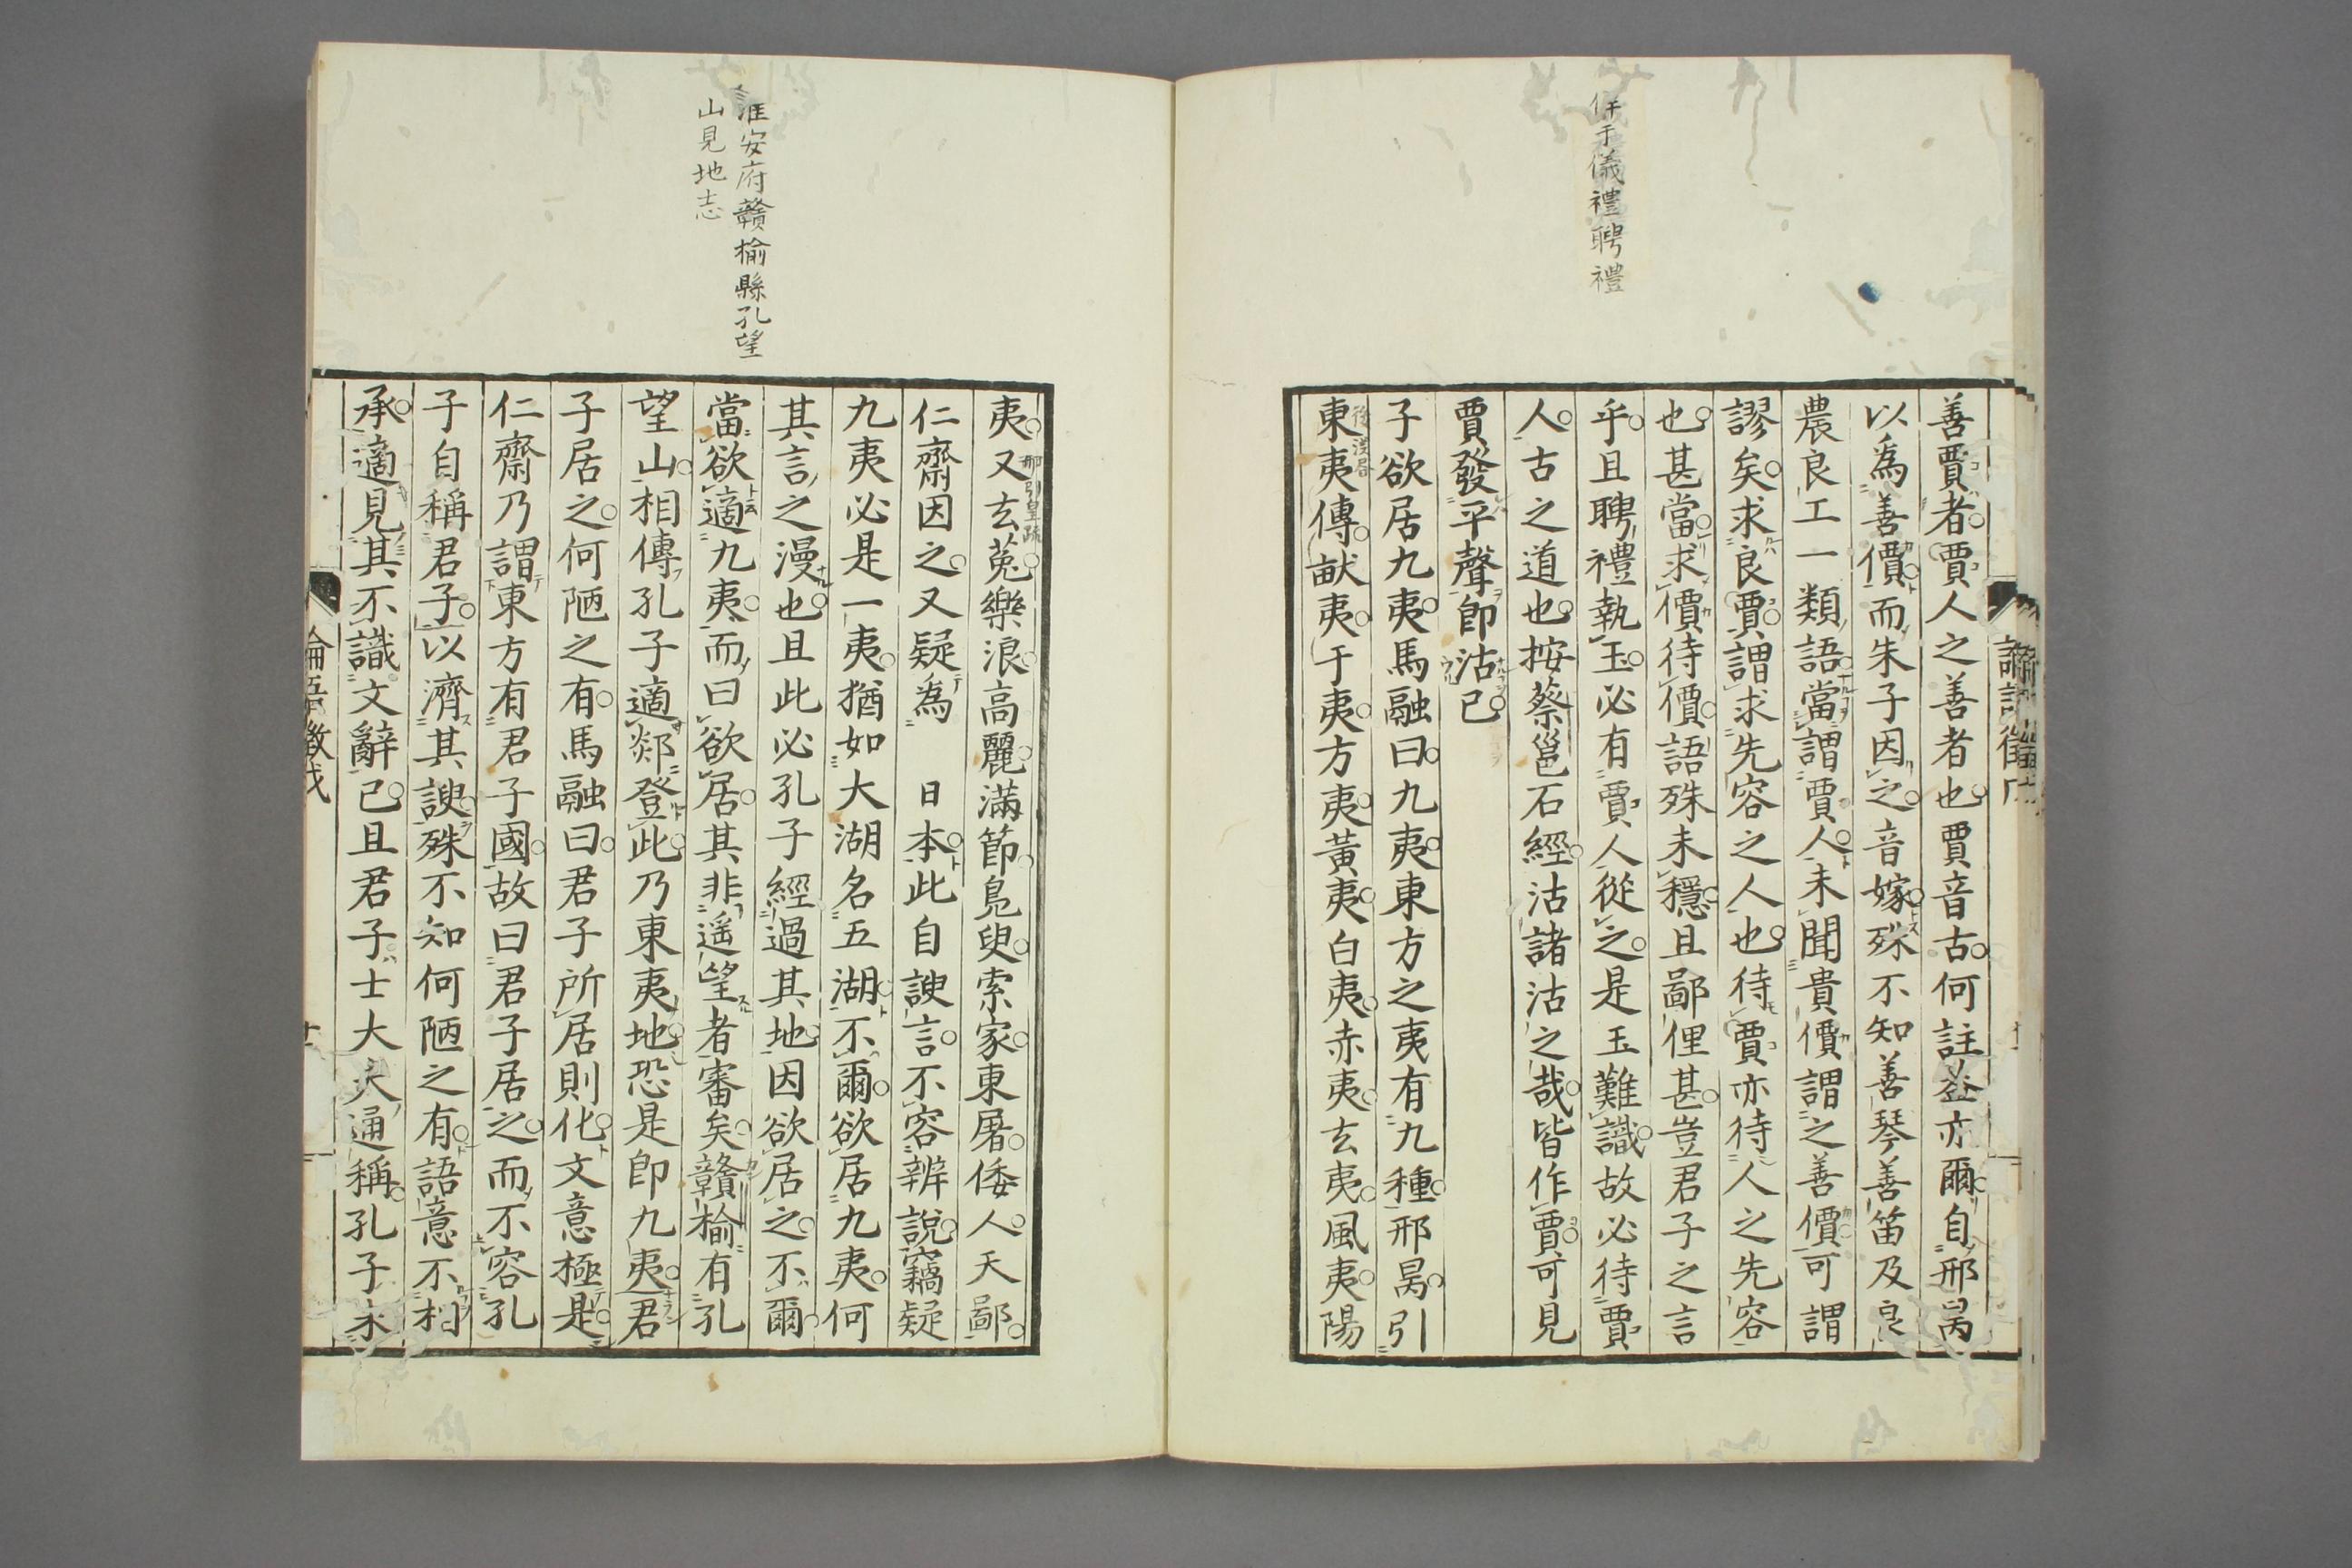 儀禮聘禮
善賈者賈人之善者也賈音古何註益亦爾自邢昺
以爲善價而朱子因之音嫁殊不知善琴善笛及良
農良工一類語當謂賈人未聞貴價謂之善價可謂
謬矣求良賈謂求先容之人也待賈亦待人之先容
也甚當求價待價語殊未穩且鄙俚甚豈君子之言
乎且聘禮執玉必有賈人從之是玉難識故必待賈
人古之道也按蔡邕石經沽諸沽之哉皆作賈可見
賈發平聲卽沽已
子欲居九夷馬融曰九夷東方之夷有九種邢昺引
後漢書
東夷傳畎夷于夷方夷黃夷白夷赤夷玄夷風夷陽
淮安府贛榆縣孔望
山見地志
夷又玄菟樂浪高麗滿節鳧臾索家東屠倭人天鄙
邢引皇疏
仁齋因之又疑爲 日本此自諛言不容辨說竊疑
九夷必是一夷猶如大湖名五湖不爾欲居九夷何
其言之漫也且此必孔子經過其地因欲居之不爾
當欲適九夷而曰欲居其非遥望者審矣贛榆有孔
望山相傳孔子適郯登此乃東夷地恐是卽九夷君
子居之何陋之有馬融曰君子所居則化文意極是
仁齋乃謂東方有君子國故曰君子居之而不容孔
子自稱君子以濟其諛殊不知何陋之有語意不相
承適見其不識文辭已且君子士大夫通稱孔子未
論語徵戊